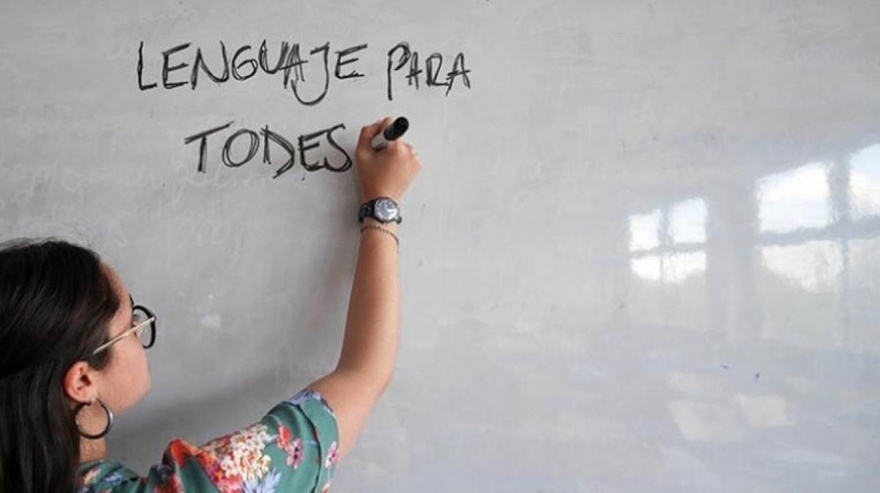 LENGUAJE PARA
TODES